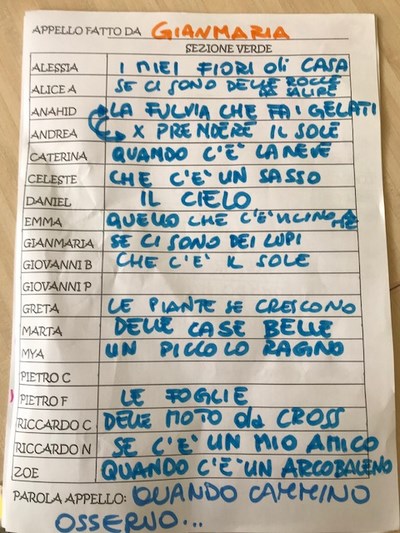 APPELLO FATTO DA GIANMARIA
SEZIONE VERDE
ALESSIA I MIEI FIORI di CASA
ALICE A SE CI SONO DELLE ROCCE
DA SALIRE
ANAHID LA FULVIA CHE FA I GELATI
ANDREA X PRENDERE IL SOLE
CATERINA QUANDO C'È LA NEVE
CELESTE CHE C'È UN SASSO
DANIEL IL CIELO
EMMA QUELLO CHE C'È VICINO A ME
GIANMARIA SE CI SONO DEI LUPI
GIOVANNI B CHE C'È IL SOLE
GIOVANNI P
GRETA LE PIANTE SE CRESCONO
MARTA DELLE CASE BELLE
MYA UN PICCOLO RAGNO
PIETRO C
PIETRO F LE FOGLIE
RICCARDO C DELLE MOTO da CROSS
RICCARDO N SE C'È UN MIO AMICO
ZOE QUANDO C'È UN ARCOBALENO
PAROLA APPELLO: QUANDO CAMMINO
OSSERVO...